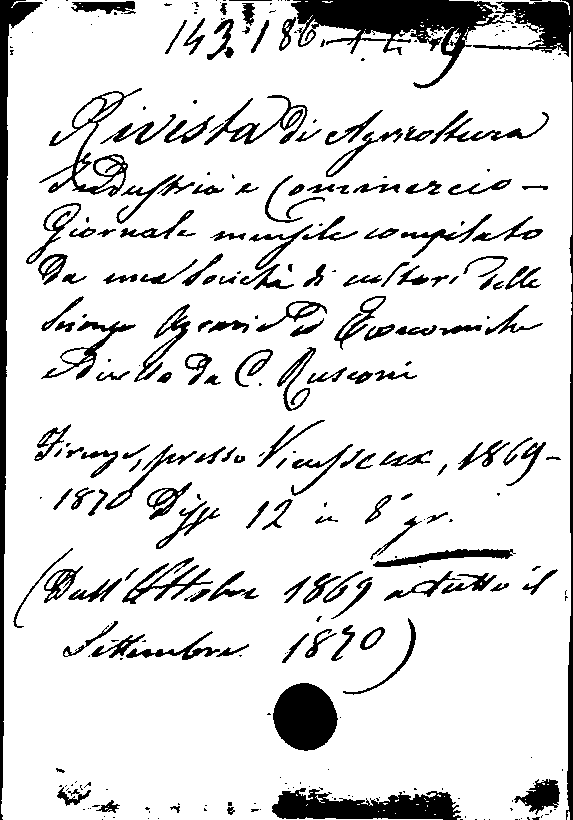 143.186.
Rivista di Agricoltura
Industria e Commercio -
Giornale mensile compilato
da una Società di cultori delle
Scienze Agrarie ed Economiche
diretto da C. Rusconi
Firenze, presso Vieusseux, 1869-
1870 Disp 12 in 8° gr.
(Dall'Ottobre 1869 a tutto il
Settembre 1870)